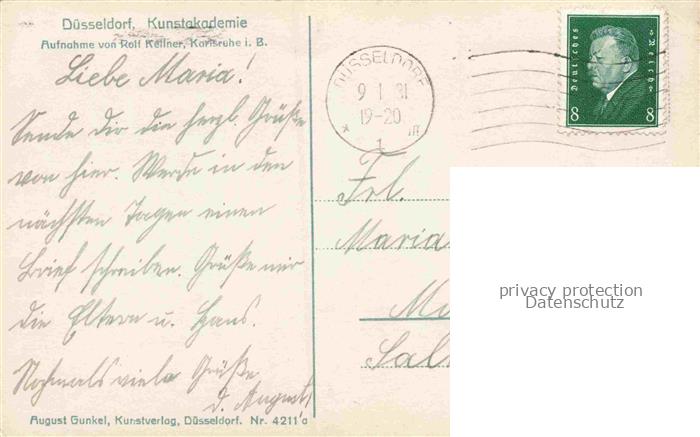 Düsseldorf, Kunstakademie
Aufnahme von Rolf Kellner, Karlsruhe i. B.
Liebe Maria!
Sende dir die herzl. Grüße
von hier. Werde in den
nächsten Tagen einen
Brief schreiben. Grüße mir
die Eltern u. Hans.
Nochmals viele Grüße
d. August
August Gunkel, Kunstverlag, Düsseldorf. Nr. 4211 a
DÜSSELDORF
9 1 31
19-20
* 1 m
Deutsches Reich
8 8
Frl.
Maria
privacy protection
Datenschutz